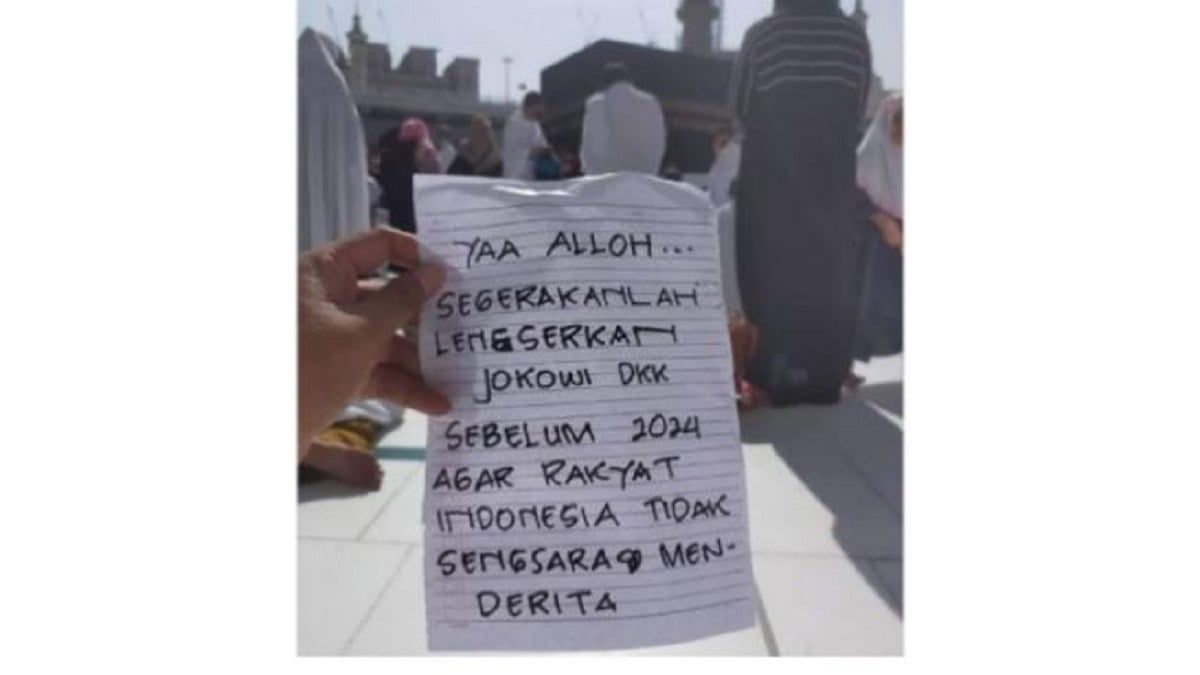 YAA ALLOH...
SEGERAKANLAH
LENGSERKAN
JOKOWI DKK
SEBELUM 2024
AGAR RAKYAT
INDONESIA TIDAK
SENGSARA & MEN-
DERITA